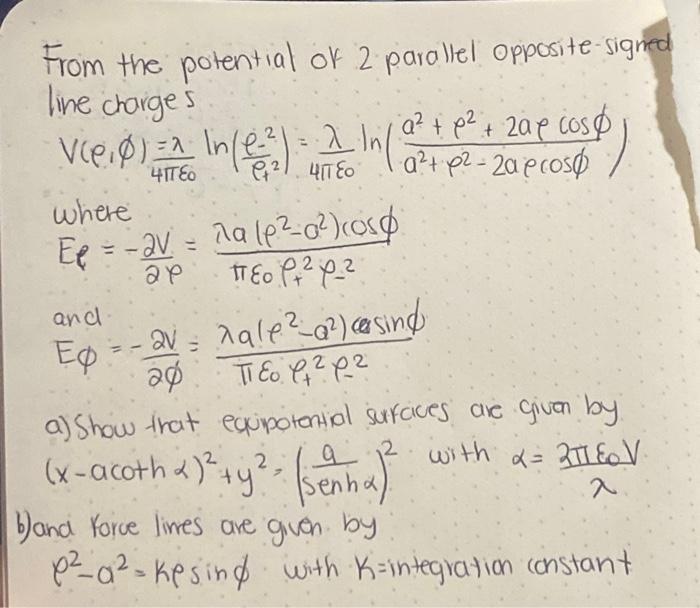 From the potential of 2 parallel opposite-signed
line charges
V(ρ,φ) = λ/4πε₀ ln(ρ₋²/ρ₊²) = λ/4πε₀ ln(a² + ρ² + 2aρ cosφ / a² + ρ² - 2aρcosφ)
where
Eρ = -∂V/∂ρ = λa(ρ²-a²)cosφ / πε₀ρ₊²ρ₋²
and
Eφ = -∂V/∂φ = λa(ρ²-a²) sinφ / πε₀ρ₊²ρ₋²
a) Show that equipotential surfaces are given by
(x-acothα)² + y² = (a/senhα)² with α = 2πε₀V/λ
b) and force lines are given by
ρ²-a² = Kρsinφ with K=integration constant